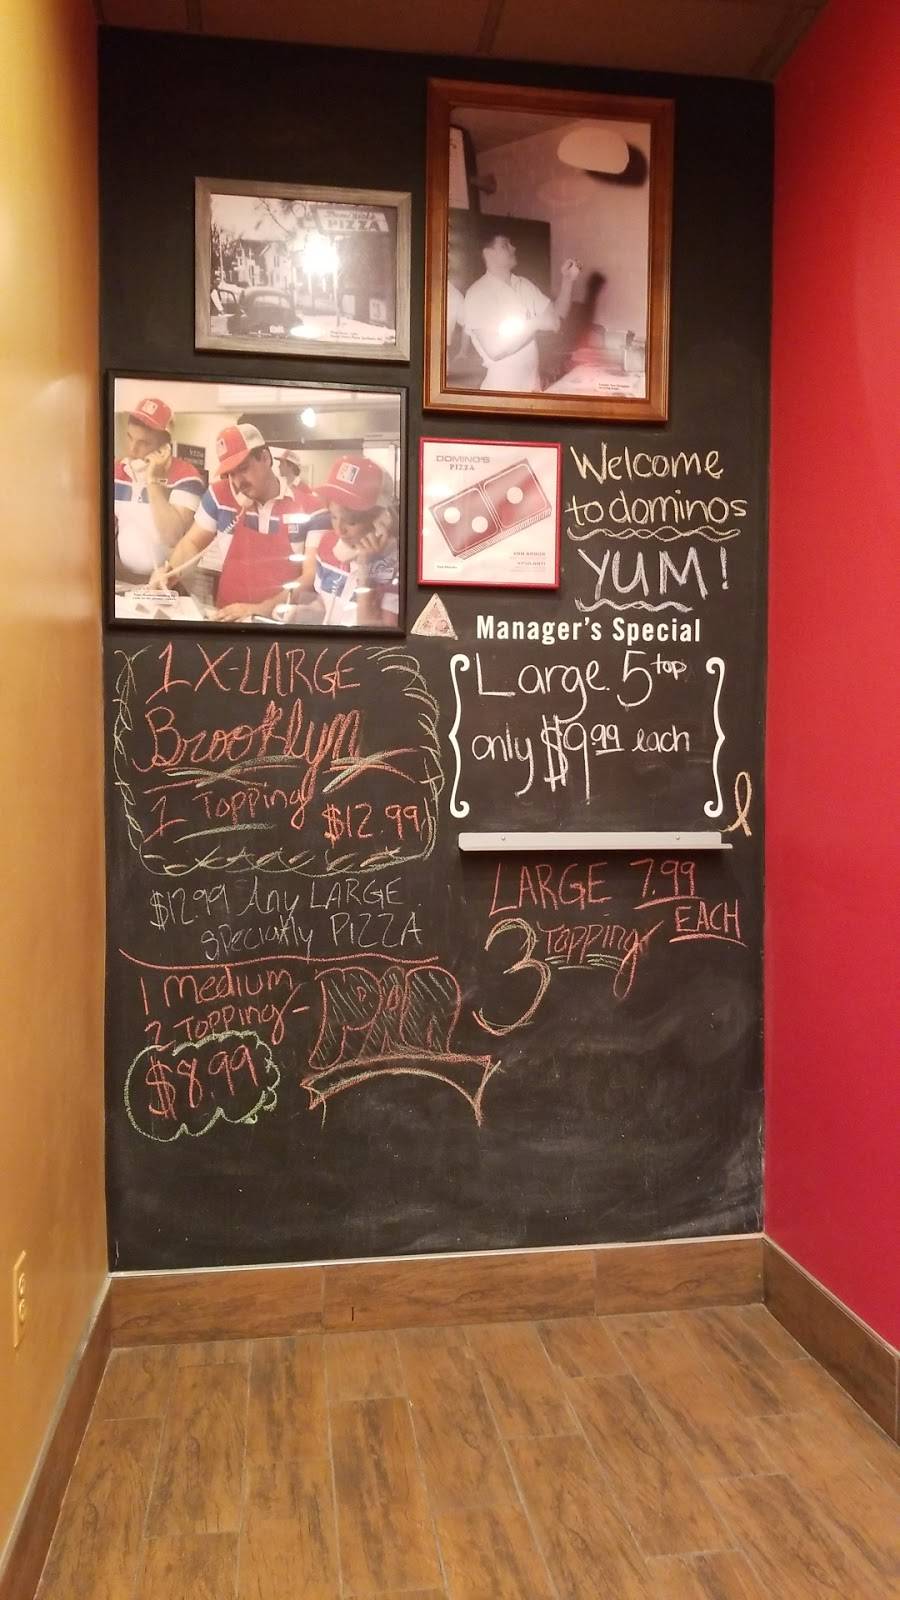 PIZZA
DOMINO'S
PIZZA
ANN ARBOR
YPSILANTI
Welcome
to dominos
YUM!
Manager's Special
Large 5 top
only $9.99 each
1 X-LARGE
Brooklyn
1 Topping $12.99
$12.99 Any LARGE
Specialty PIZZA
1 Medium
2 Topping - Pan
$8.99
LARGE 7.99
3 Topping EACH